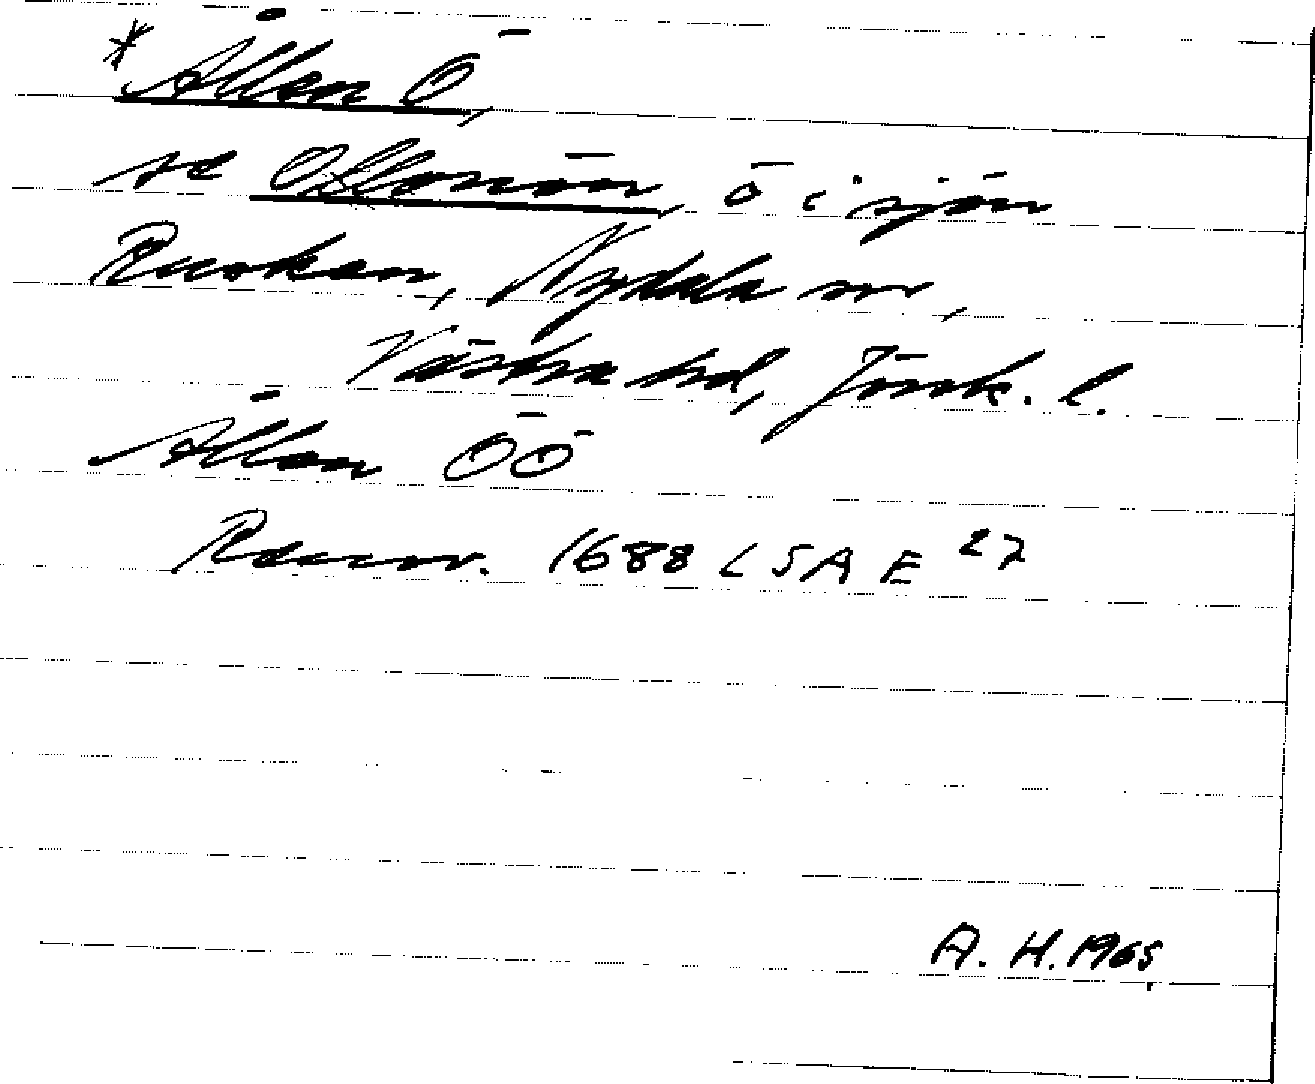 * Ållan Ö,
se Ollonön, ö i sjön
Rusken, Nydala sn,
Västra hd, Jönk. l.
Ållan ÖÖ
Rannv. 1688 LSA E 27
A. H. 1965